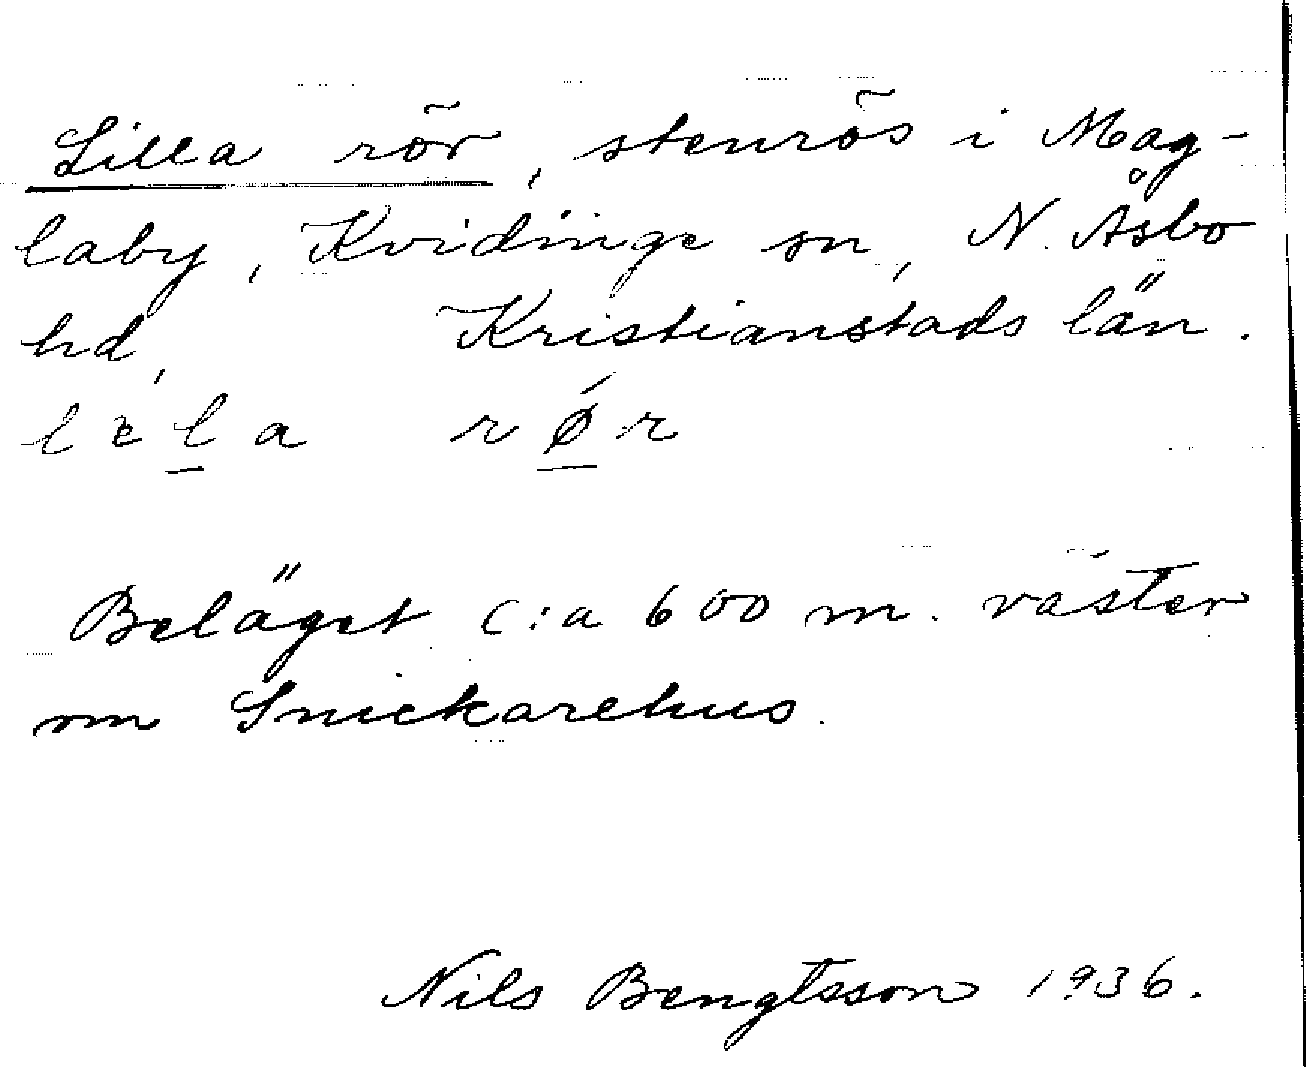 Lilla rör, stenrös i Mag-
laby, Kvidinge sn, N. Åsbo
hd, Kristianstads län.
lela rǿr
Beläget c:a 600 m. väster
om Snickarehus.
Nils Bengtsson 1936.